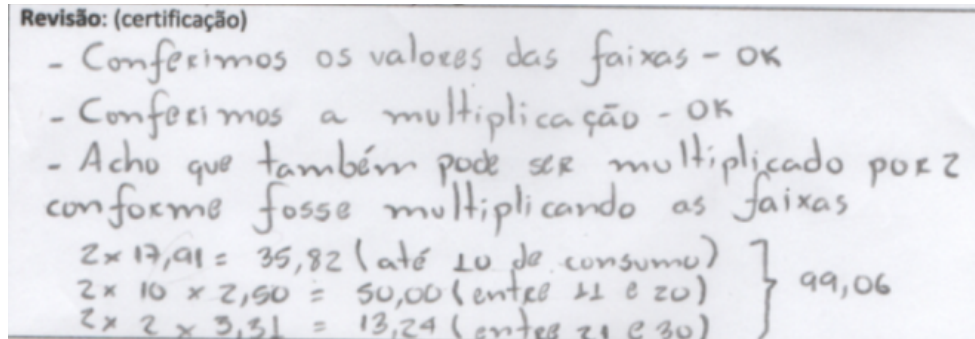 Revisão: (certificação)
- Conferimos os valores das faixas - OK
- Conferimos a multiplicação - OK
- Acho que também pode ser multiplicado por 2
conforme fosse multiplicando as faixas
2 x 17,91 = 35,82 (até 10 de consumo)
2 x 10 x 2,50 = 50,00 (entre 11 e 20) } 99,06
2 x 2 x 3,31 = 13,24 (entre 21 e 30)